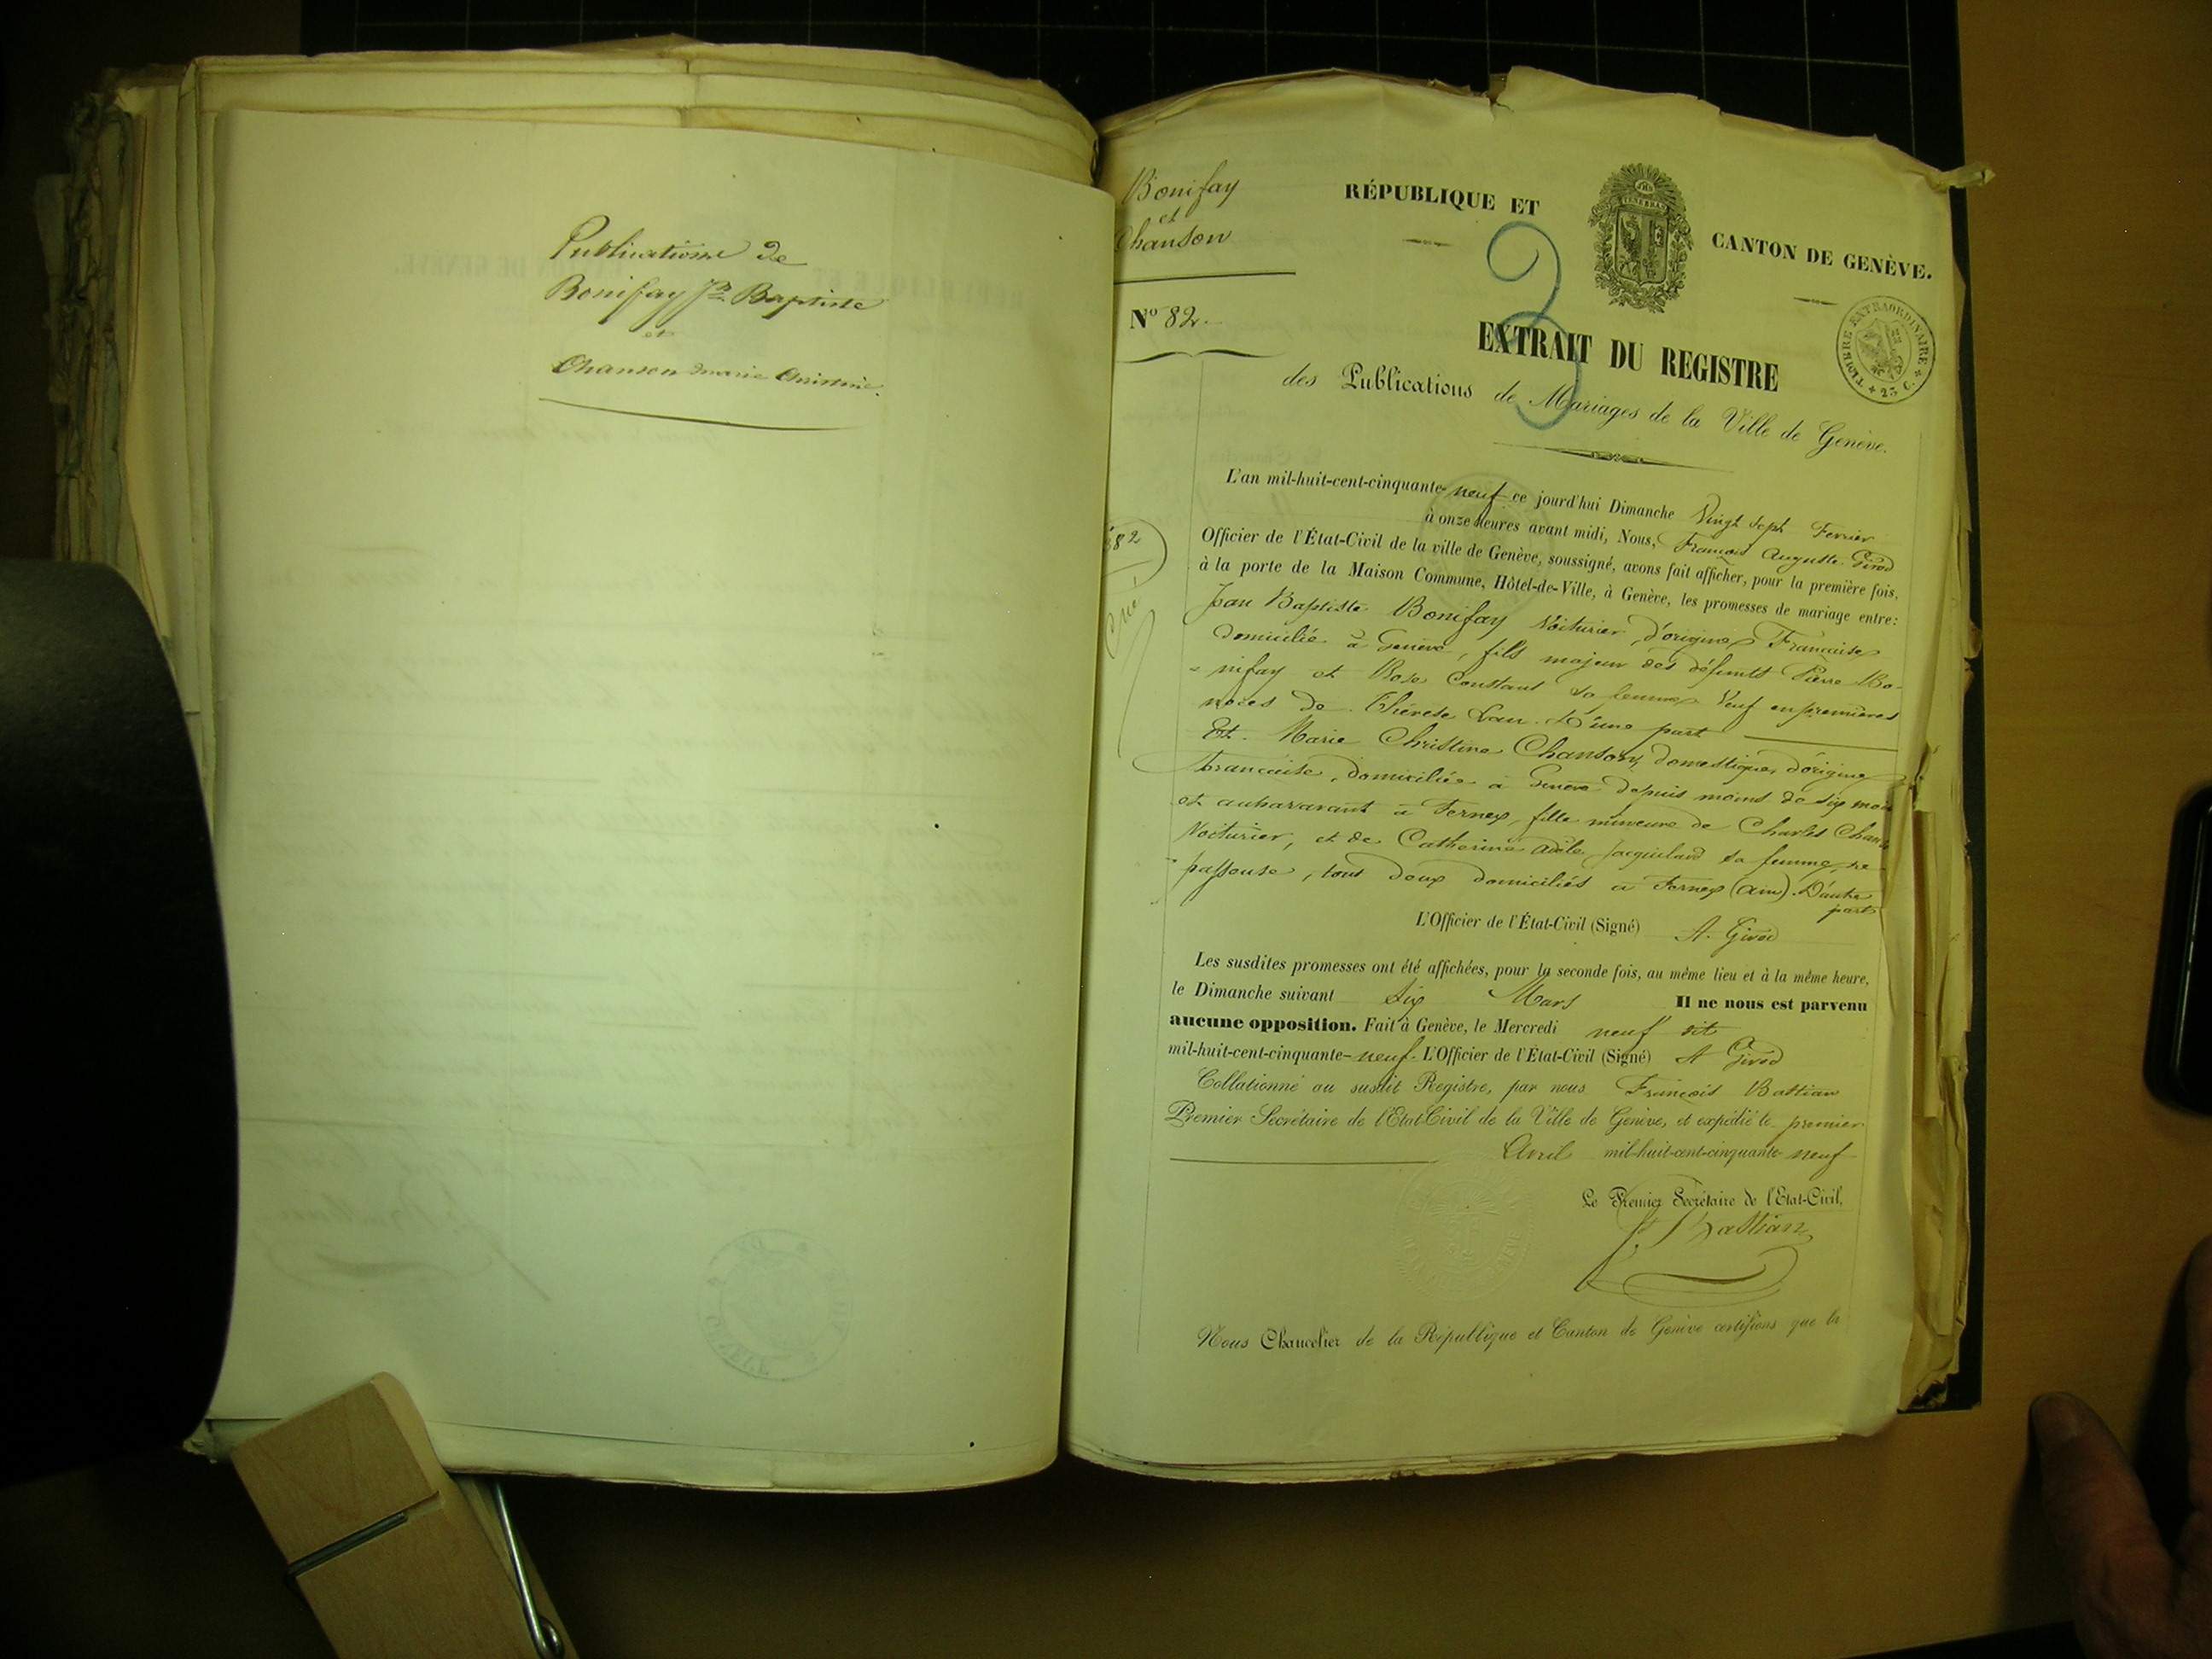 Publications de
Bonifay Jn Baptiste
et
Chanson Marie Christine.
Bonifay
et
Chanson
N° 82.
RÉPUBLIQUE ET CANTON DE GENÈVE.
TIMBRE EXTRAORDINAIRE
25 C.
3
EXTRAIT DU REGISTRE
des Publications de Mariages de la Ville de Genève.
L'an mil-huit-cent-cinquante-neuf ce jourd'hui Dimanche Vingt sept Fevrier
à onze heures avant midi, Nous, François Auguste Girod
Officier de l'État-Civil de la ville de Genève, soussigné, avons fait afficher, pour la première fois,
à la porte de la Maison Commune, Hôtel-de-Ville, à Genève, les promesses de mariage entre:
82
Jean Baptiste Bonifay Voiturier, d'origine Française
domicilié à Genève, fils majeur des défunts Pierre Bo-
nifay et Rose Constant sa femme, Veuf en premières
noces de Thérèse Lau. D'une part
Et Marie Christine Chanson, domestique, d'origine
Française, domiciliée à Genève depuis moins de six mois
et auparavant à Fernex, fille mineure de Charles Chanson
Voiturier, et de Catherine Adèle Jacquelard sa femme, re-
passeuse, tous deux domiciliés à Fernex (Ain). D'autre
part
L'Officier de l'État-Civil (Signé) A. Girod
Les susdites promesses ont été affichées, pour la seconde fois, au même lieu et à la même heure,
le Dimanche suivant Six Mars Il ne nous est parvenu
aucune opposition. Fait à Genève, le Mercredi neuf dit
mil-huit-cent-cinquante-neuf. L'Officier de l'État-Civil (Signé) A Girod
Collationné au susdit Registre, par nous François Bastian
Premier Secrétaire de l'Etat-Civil de la Ville de Genève, et expédié le premier
Avril mil-huit-cent-cinquante neuf
Le Premier Secrétaire de l'Etat-Civil,
F. Bastian
Nous Chancelier de la République et Canton de Genève certifions que la